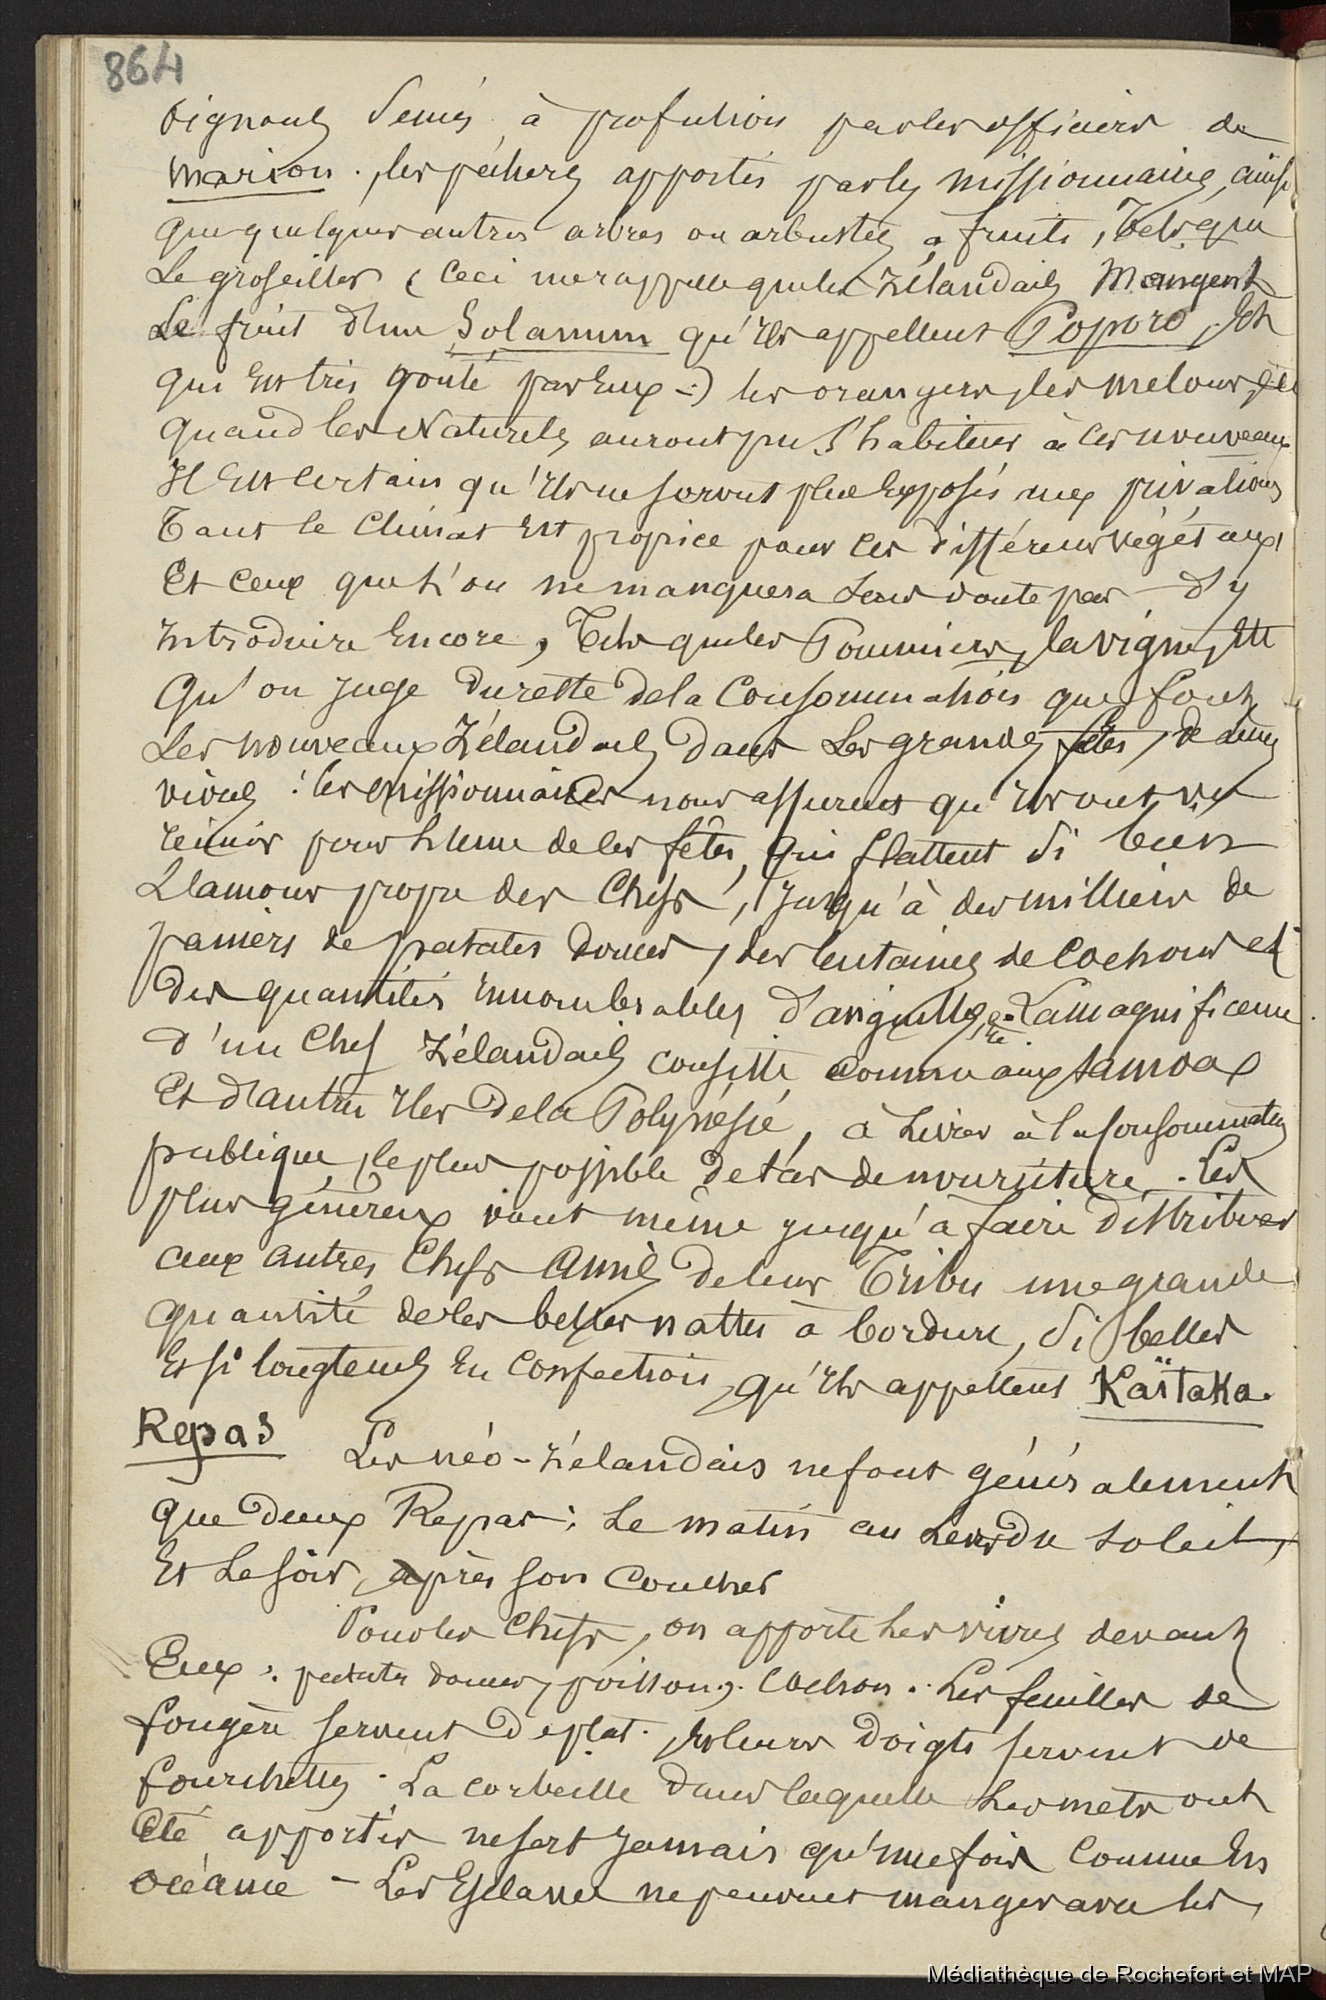 864
oignons semés à profusion par les officiers de
Marion. , les péchers apportés par les missionnaires, ainsi
que quelques autres arbres ou arbustes à fruits, tels que
Le groseiller ( Ceci me rappelle que les Zélandais Mangent
Le fruit d'un Solanum qu'ils appellent Poporo, Et
qui Est très gouté par Eux -) les orangers, les melons, Et
quand les Naturels auront pu s'habituer à ces nouveaux
Il Est certain qu'ils ne seront plus Exposés aux privations
Tant le Climat Est propice pour ces différens végétaux,
Et ceux que l'on ne manquera sans doute pas d'y
introduire Encore, Tels que les Pommiers, la vigne, Etc
Qu'on juge du reste de la Consommation que font
Les nouveaux Zélandais dans Les grandes fêtes, de leurs
vivres ! les missionnaires nous assurent qu'ils ont vu
réunir pour l'une de ces fêtes, qui flattent si bien
L'amour propre des Chefs, jusqu'à des milliers de
paniers de patates douces, des centaines de Cochons et
Des quantités innombrables d'anguilles. La magnificence
d'un Chef Zélandais consiste, comme aux Samoa
Et d'autres Iles de la Polynésie, à Livrer à la consommation
publique, le plus possible de tas de nourriture. Les
plus généreux vont même jusqu'à faire distribuer
aux autres Chefs Amis de leur Tribu une grande
quantité de ces belles nattes à bordure, si belles
Et si longtems En Confection, qu'ils appellent Kaïtaka.
Repas
Les néo-Zélandais ne font généralement
que deux Repas : Le matin au Lever du soleil,
Et Le soir, après son coucher
Pour les Chefs, on apporte Les vivres devant
Eux : patates douces, poissons, Cochon. Les feuilles de
fougère servent de plat. , Et leurs doigts servent de
fourchettes. La corbeille dans laquelle Les mets ont
Eté apportés ne sert jamais qu'une fois Comme En
océanie - Les Esclaves ne peuvent manger avec les
Médiathèque de Rochefort et MAP